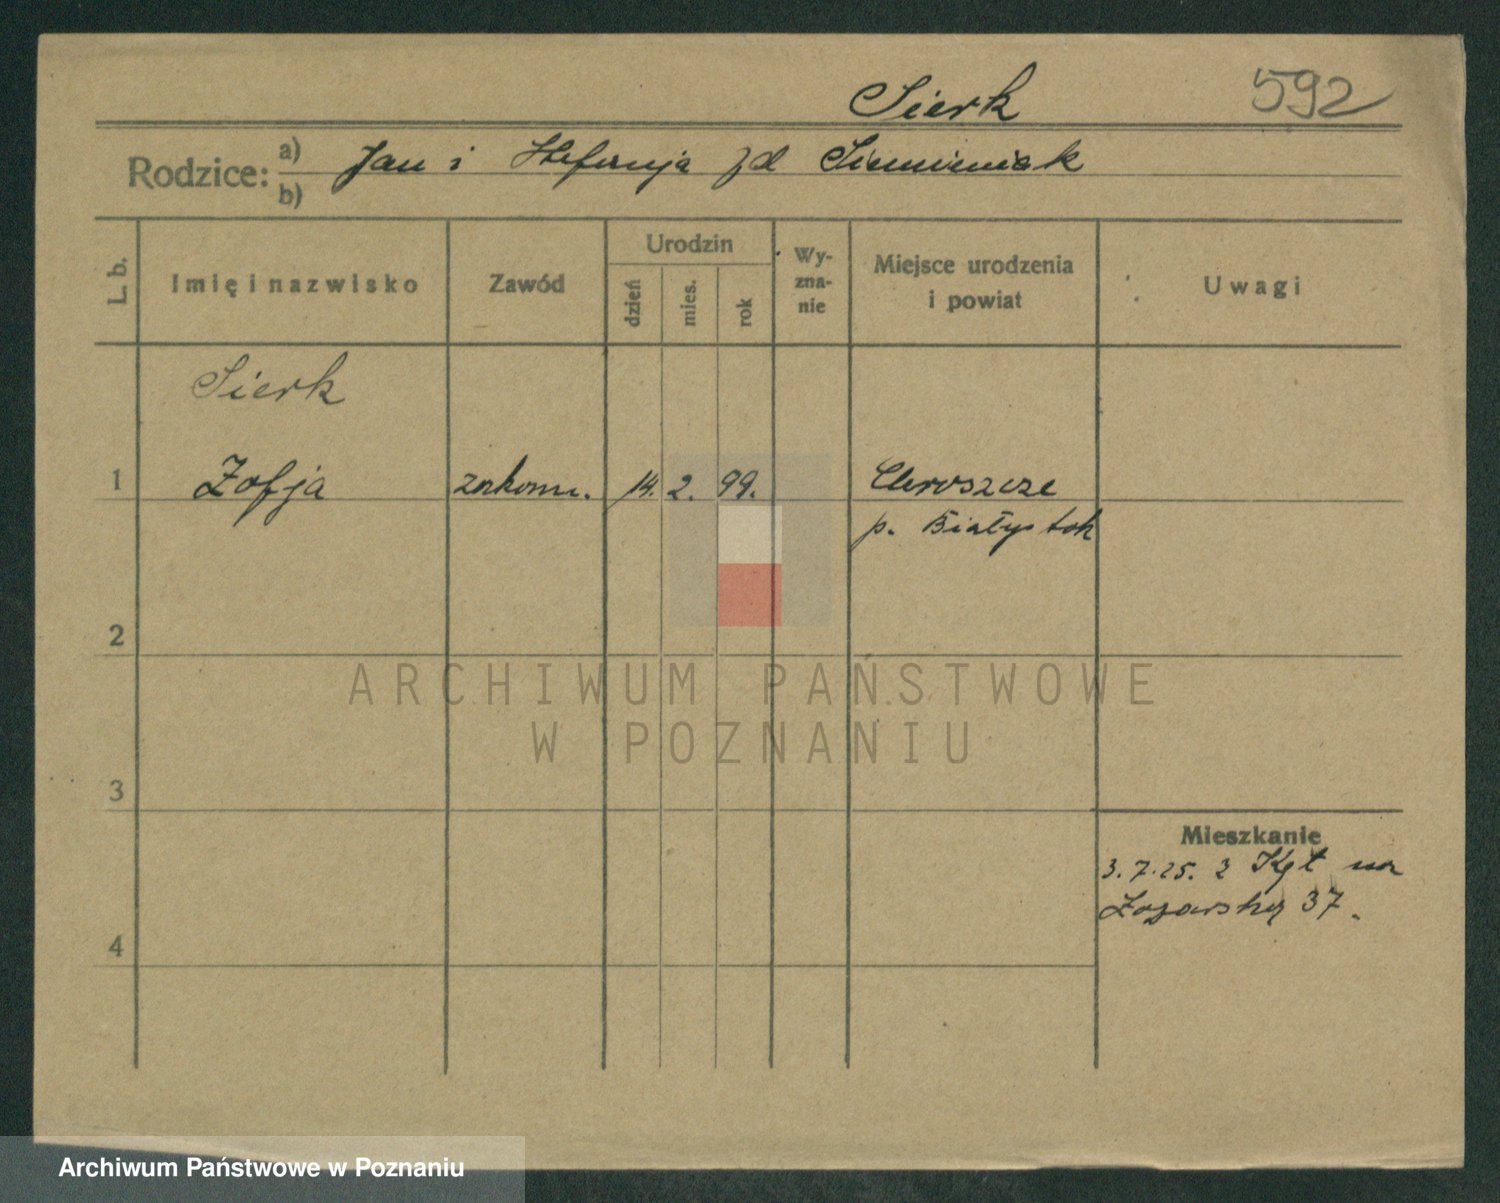 Sierk 592
Rodzice: a) Jan i Stefanja zd
b)
L. b. Imię i nazwisko Zawód Urodzin dzień mies. rok Wy-zna-nie Miejsce urodzenia i powiat Uwagi
Sierk
1 Zofja zakonn. 14. 2. 99. Choroszcze
p. Białystok
2
ARCHIWUM PAŃSTWOWE
W POZNANIU
3
Mieszkanie
3.7.25. z
37.
4
Archiwum Państwowe w Poznaniu